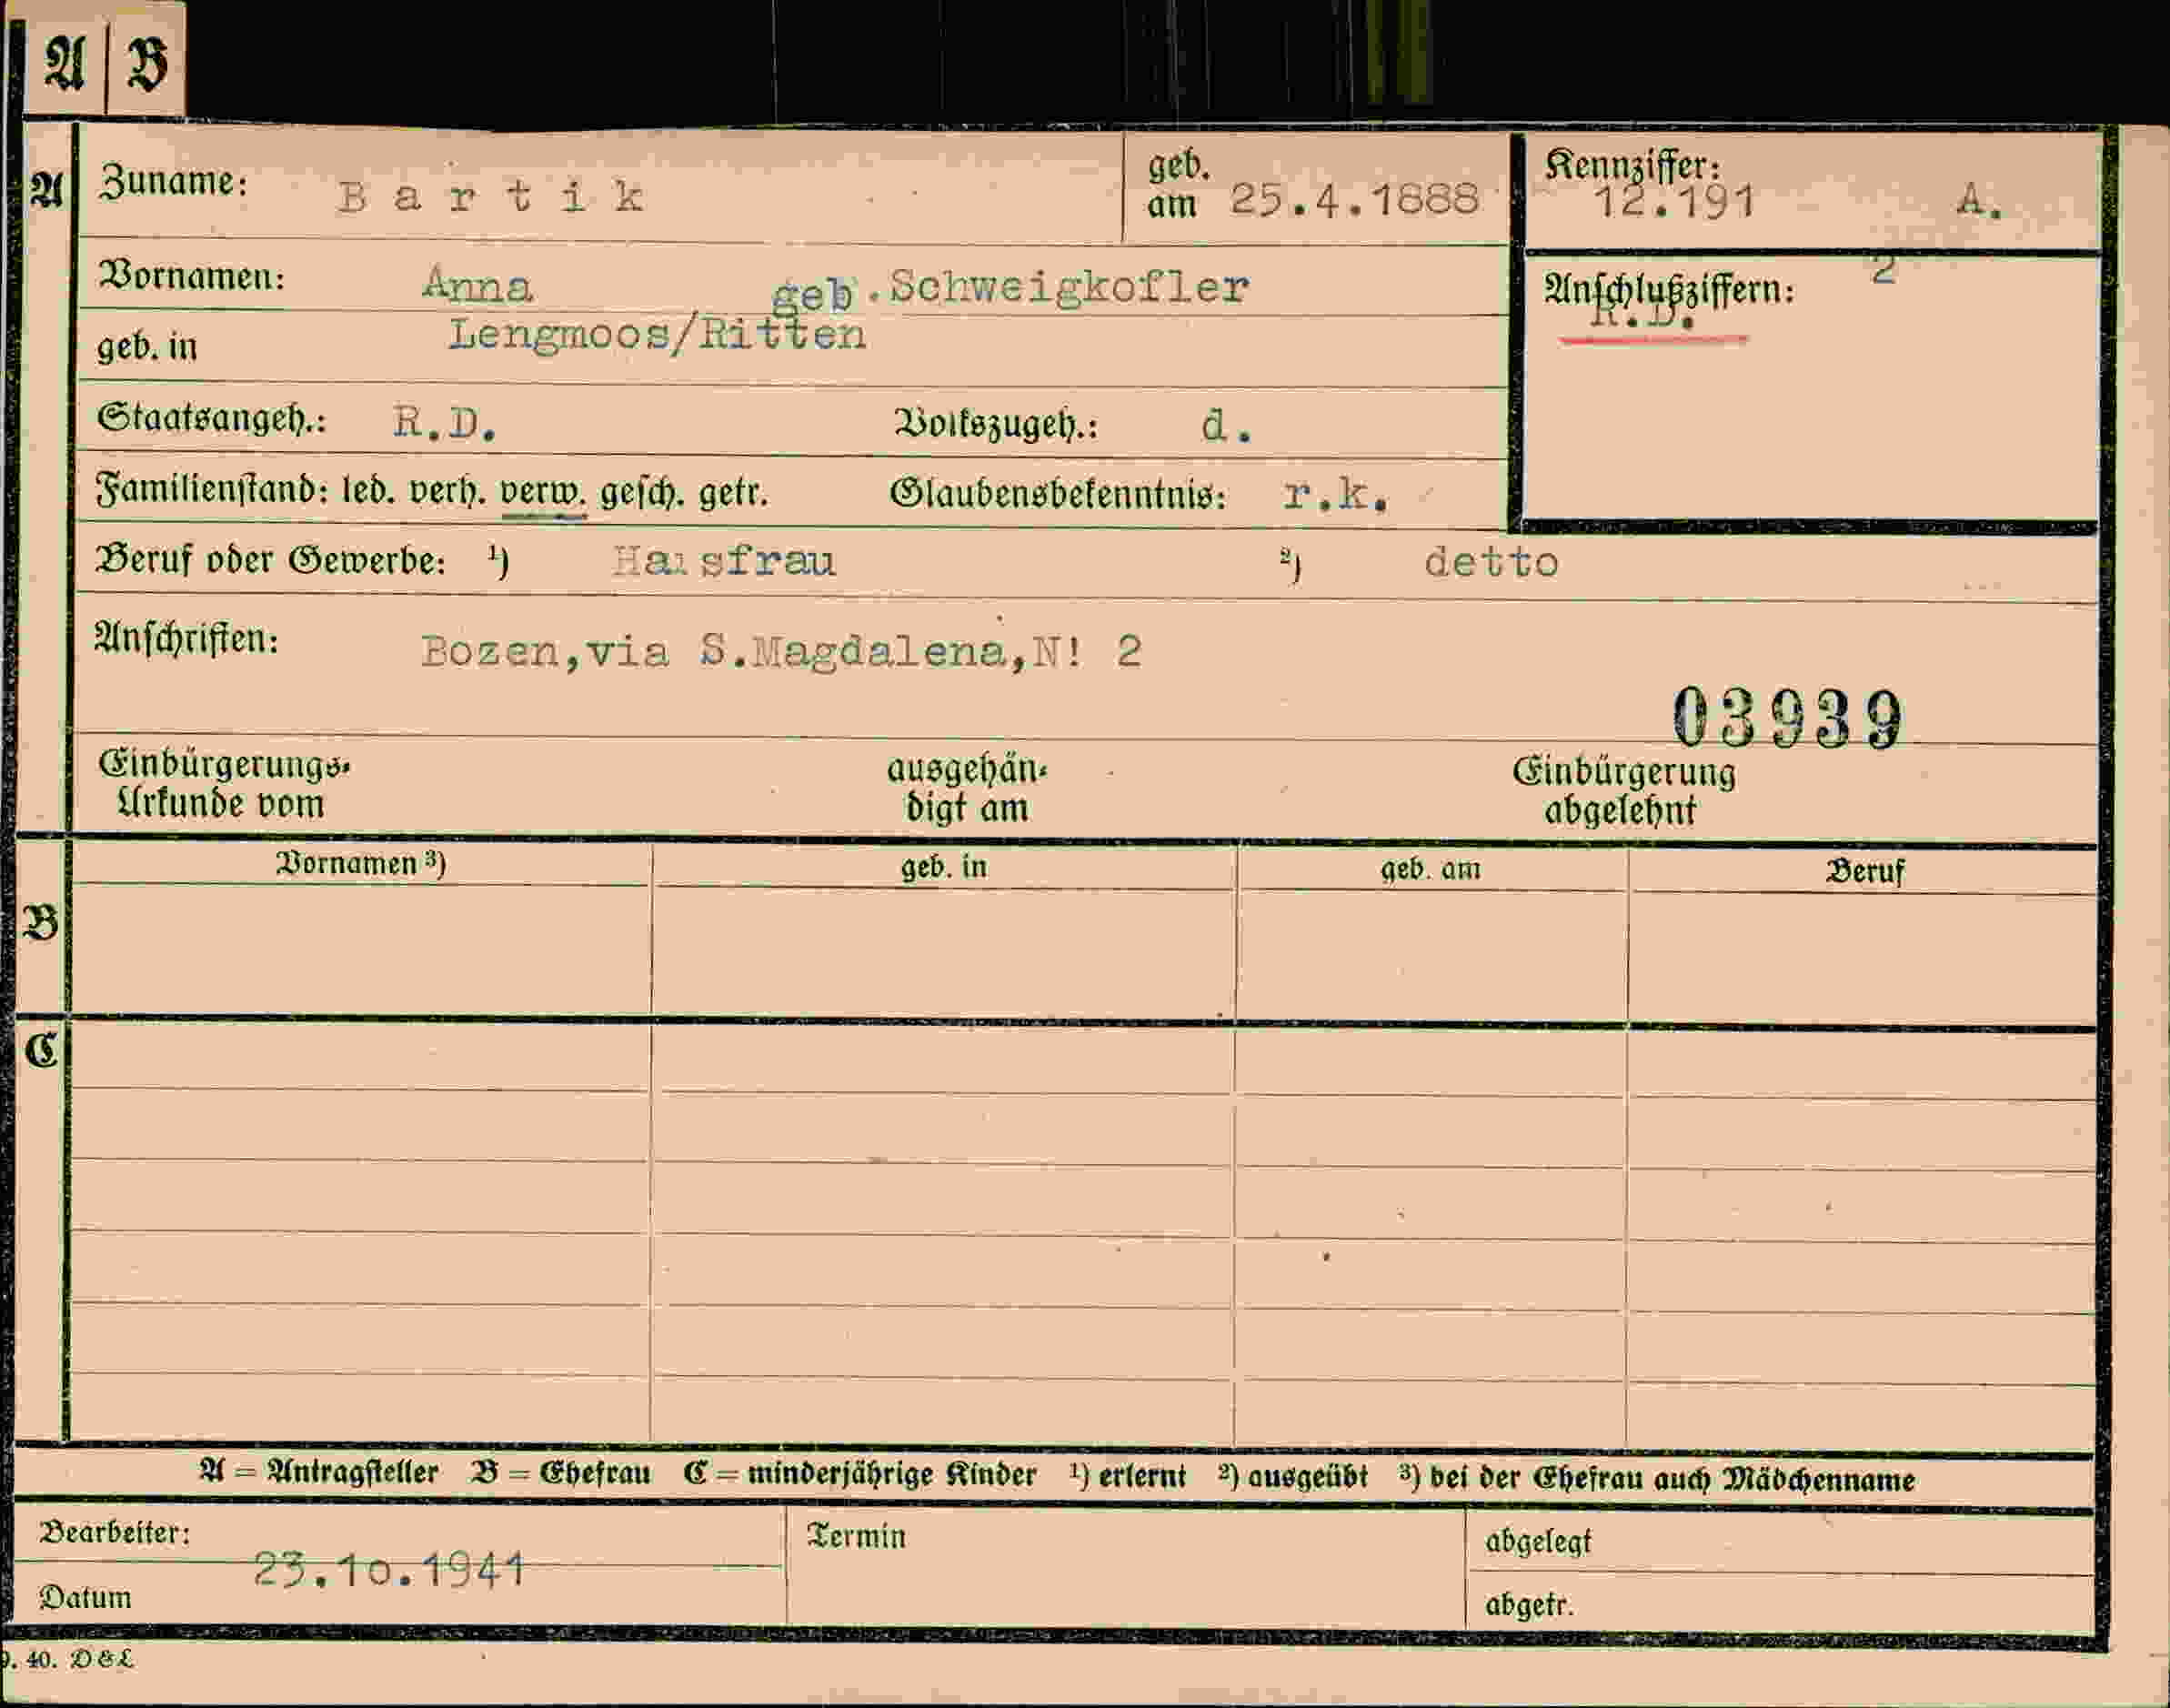 A B
A Zuname: Bartik geb. am 25.4.1888 Kennziffer: 12.191 A.
Vornamen: Anna geb. Schweigkofler Anschlußziffern: 2
R.D.
geb. in Lengmoos/Ritten
Staatsangeh.: R.D. Volkszugeh.: d.
Familienstand: led. verh. verw. gesch. getr. Glaubensbekenntnis: r.k.
Beruf oder Gewerbe: ¹) Hausfrau ²) detto
Anschriften: Bozen,via S.Magdalena,N! 2
03939
Einbürgerungs- ausgehän- Einbürgerung
Urkunde vom digt am abgelehnt
Vornamen ³) geb. in geb. am Beruf
B
C
A = Antragsteller B = Ehefrau C = minderjährige Kinder ¹) erlernt ²) ausgeübt ³) bei der Ehefrau auch Mädchenname
Bearbeiter: Termin abgelegt
23.10.1941
Datum abgetr.
9. 40. D&L